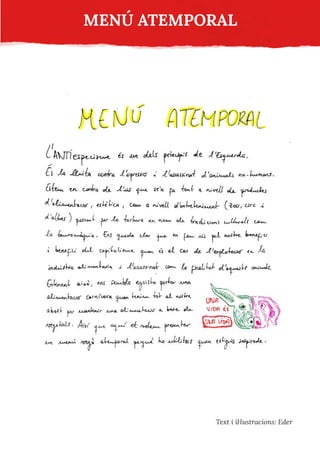 MENÚ ATEMPORAL
MENÚ ATEMPORAL
L'ANTIespecisme és un dels principis de l'Esquerda.
És la lluita contra l'opressió i l'assassinat d'animals no-humans.
Estem en contra de l'ús que se'n fa tant a nivell de productes
d'alimentació, estètica, com a nivell d'entreteniment (zoo, circ i
d'altres) passant per la tortura en nom de tradicions culturals com
la tauromàquia. Ens queda clar que en fem ús pel nostre benefici
i benefici del capitalisme quan és el cas de l'explotació en la
indústria alimentària i l'assassinat com la finalitat d'aquests animals.
Entenent això, ens sembla egoista portar una
alimentació carnívora quan tenim tot al nostre
abast per mantenir una alimentació a base de
vegetals. Així que aquí et volem presentar
un menú vegà atemporal perquè ho utilitzis quan estiguis inspirada.
UNA
VIDA ÉS
UNA VIDA!
Text i il·lustracions: Eder